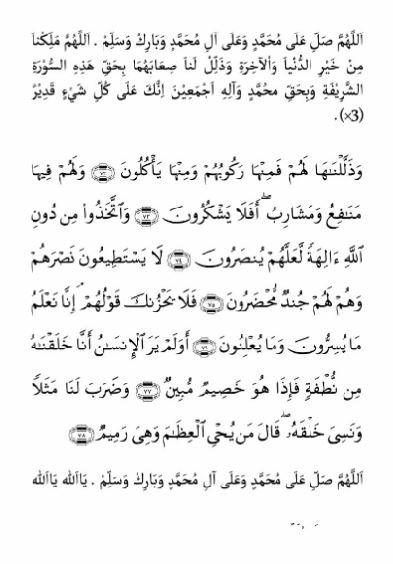 اَللَّهُمَّ صَلِّ عَلَى مُحَمَّدٍ وَعَلَى آلِ مُحَمَّدٍ وَبَارِكْ وَسَلِّمْ . اَللَّهُمَّ مَلِّكْنَا
مِنْ خَيْرِ الدُّنْيَا وَاْلآخِرَةِ وَذَلِّلْ لَنَا صِعَابَهُمَا بِحَقِّ هَذِهِ السُّوْرَةِ
الشَّرِيْفَةِ وَبِحَقِّ محُمَّدٍ وَآلِهِ اَجْمَعِيْنَ اِنَّكَ عَلَى كُلِّ شَيْءٍ قَدِيْرٌ
(٣×).
وَذَلَّلْنَٰهَا لَهُمْ فَمِنْهَا رَكُوبُهُمْ وَمِنْهَا يَأْكُلُونَ ﴿٧٢﴾ وَلَهُمْ فِيهَا
مَنَٰفِعُ وَمَشَارِبُ ۖ أَفَلَا يَشْكُرُونَ ﴿٧٣﴾ وَٱتَّخَذُوا۟ مِن دُونِ
ٱللَّهِ ءَالِهَةً لَّعَلَّهُمْ يُنصَرُونَ ﴿٧٤﴾ لَا يَسْتَطِيعُونَ نَصْرَهُمْ
وَهُمْ لَهُمْ جُندٌ مُّحْضَرُونَ ﴿٧٥﴾ فَلَا يَحْزُنكَ قَوْلُهُمْ ۘ إِنَّا نَعْلَمُ
مَا يُسِرُّونَ وَمَا يُعْلِنُونَ ﴿٧٦﴾ أَوَلَمْ يَرَ ٱلْإِنسَٰنُ أَنَّا خَلَقْنَٰهُ
مِن نُّطْفَةٍ فَإِذَا هُوَ خَصِيمٌ مُّبِينٌ ﴿٧٧﴾ وَضَرَبَ لَنَا مَثَلًا
وَنَسِىَ خَلْقَهُۥ ۖ قَالَ مَن يُحْىِ ٱلْعِظَٰمَ وَهِىَ رَمِيمٌ ﴿٧٨﴾
اَللَّهُمَّ صَلِّ عَلَى مُحَمَّدٍ وَعَلَى آلِ مُحَمَّدٍ وَبَارِكْ وَسَلِّمْ . يَااَلله يَااَلله